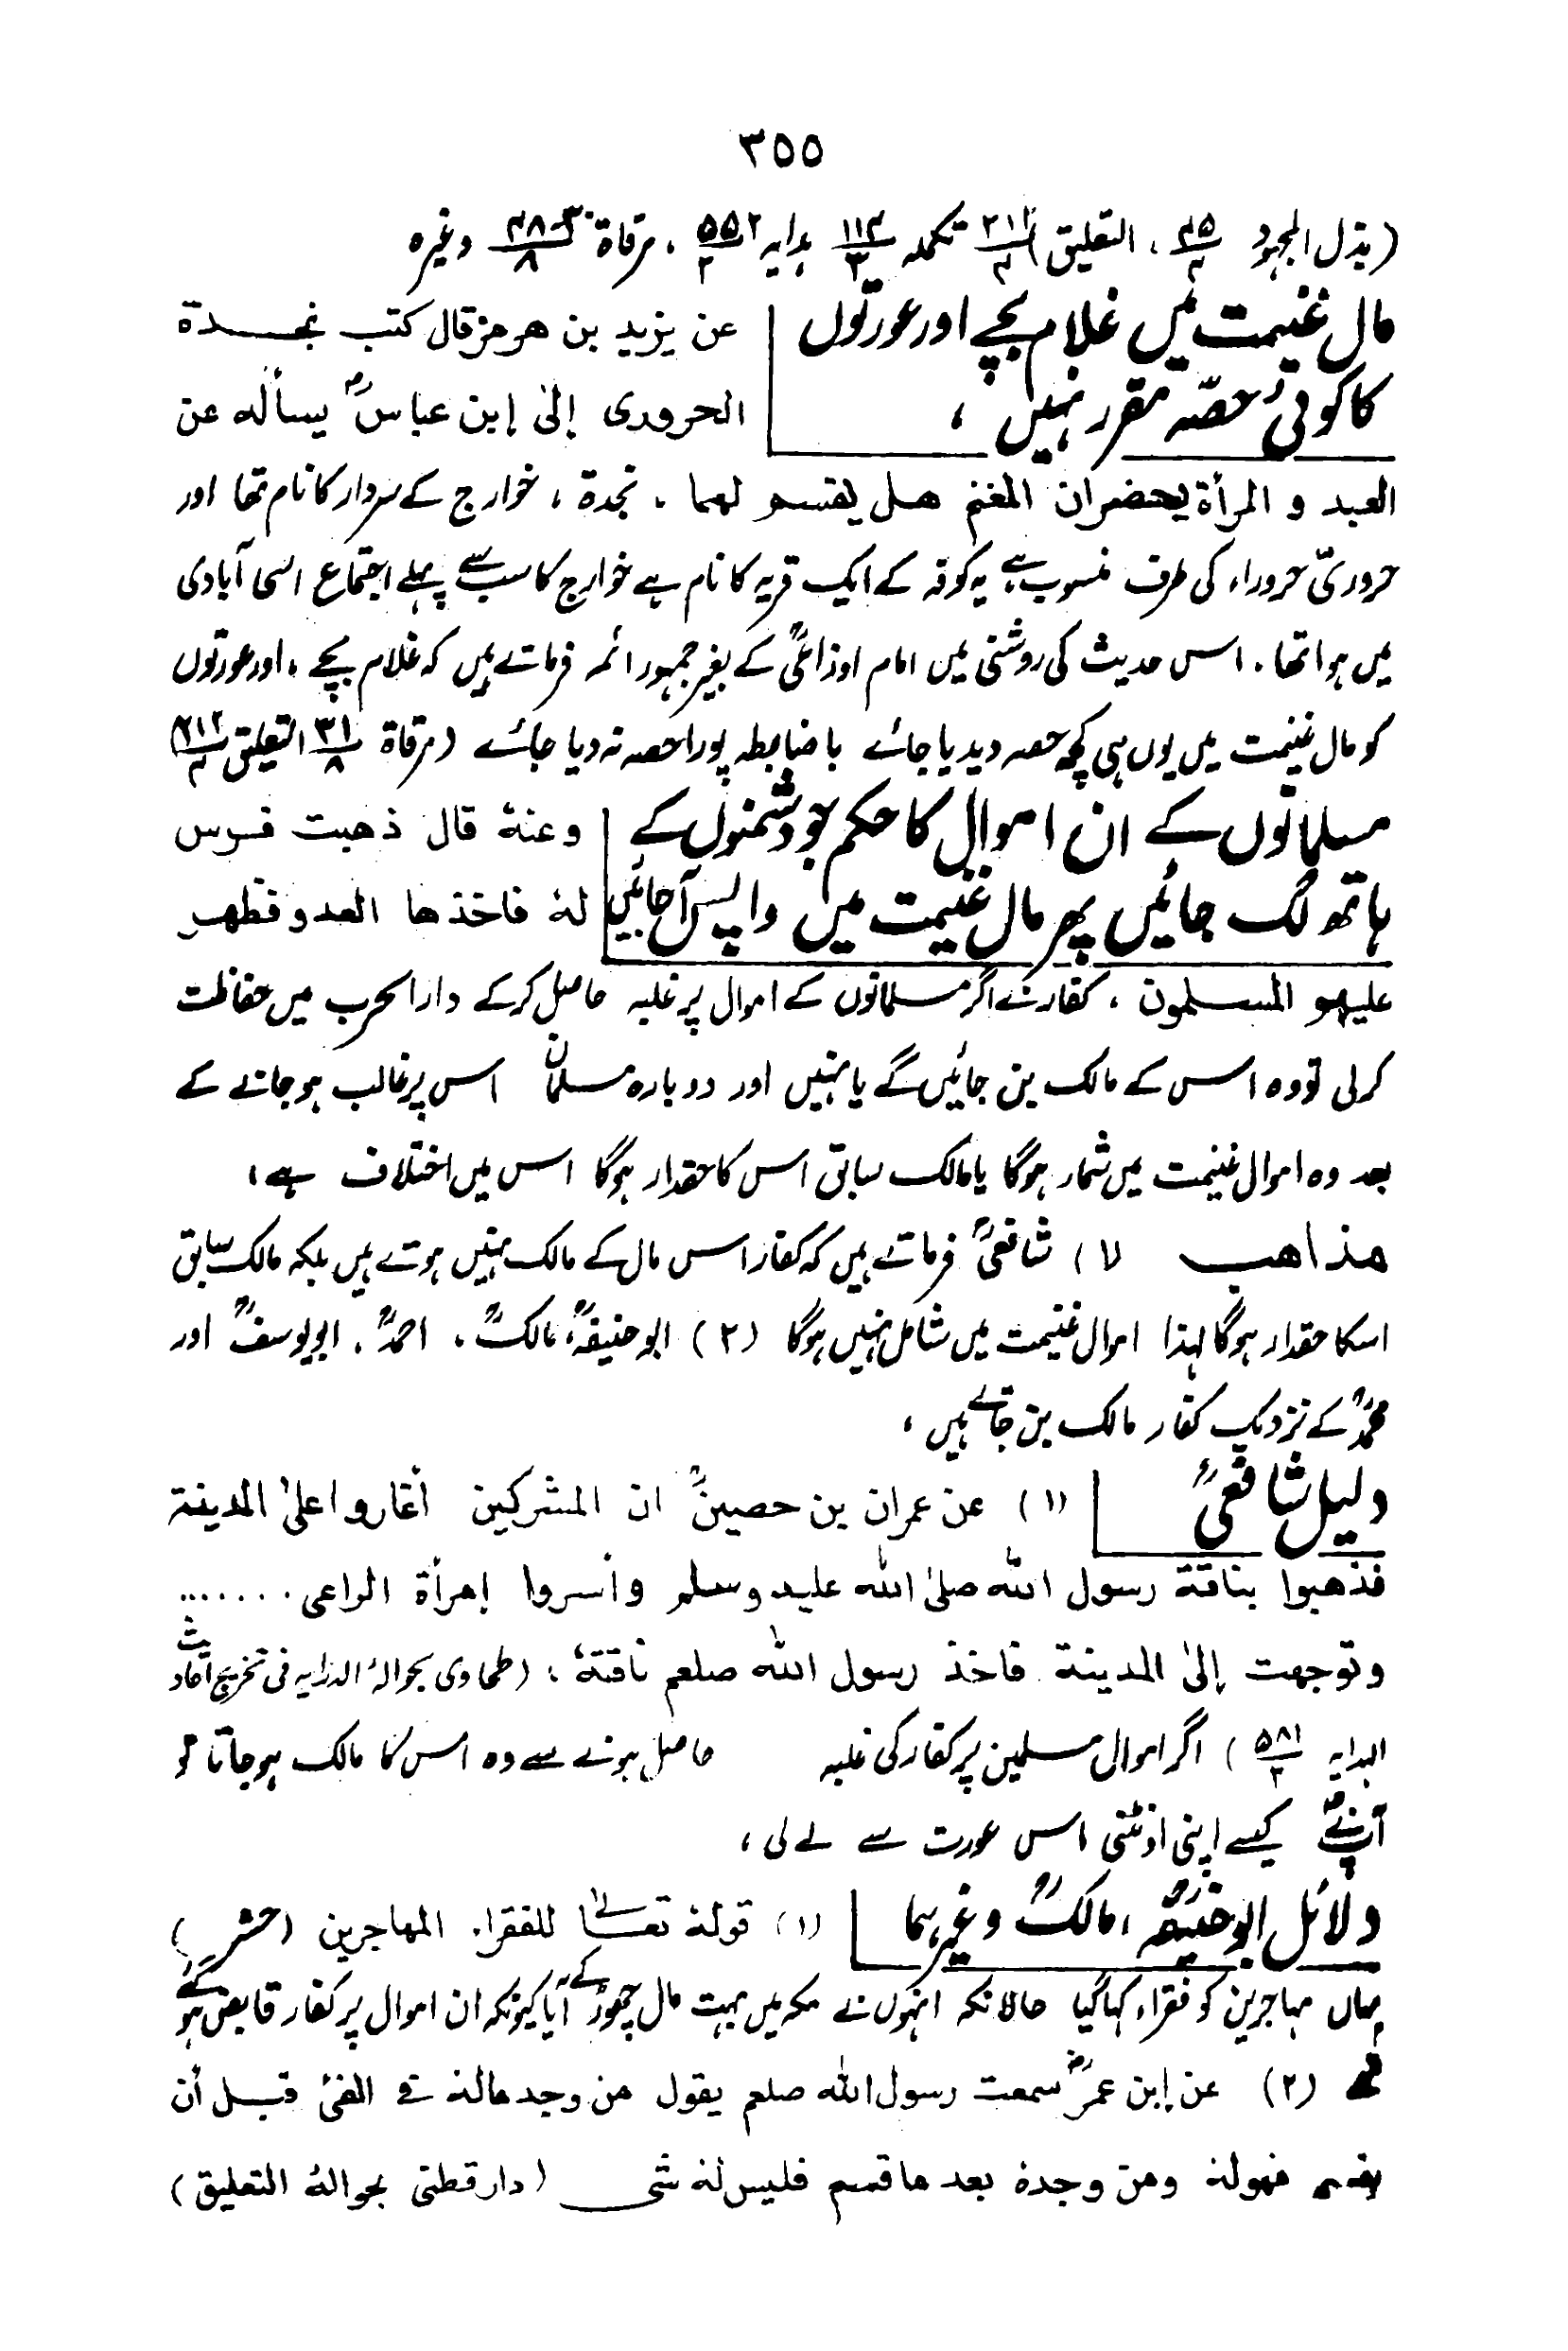 ٣٥٥
(بذل المجہود ٤٥/٤ ، التعلیق ٢١٢/٤) تکملہ ١١٣/٣ ہدایہ ٥٥٢/٢ ، مرقاة ٣٠-٤٨/٨ وغیرہ
مال غنیمت میں غلام بچے اور عورتوں
کا کوئی حصّہ مقرر نہیں ،
عن یزید بن ھرمز قال کتب نجدة
الحروری إلیٰ إبن عباسؓ یسألہ عن
العبد و المرأة یحضران المغنم ھل یقسم لھما ، نجدة ، خوارج کے سردار کا نام تھا اور
حروریّ حروراء کی طرف منسوب ہے یہ کوفہ کے ایک قریہ کا نام ہے خوارج کا سب سے پہلے اجتماع اسی آبادی
میں ہوا تھا ۔ اس حدیث کی روشنی میں امام اوزاعیؒ کے بغیر جمہور ائمہ فرماتے ہیں کہ غلام بچے ، اور عورتوں
کو مال غنیمت میں یوں ہی کچھ حصہ دیدیا جائے باضابطہ پورا حصہ نہ دیا جائے (مرقاة ٣١/٨ التعلیق ٢١٢/٤)
مسلمانوں کے ان اموال کا حکم جو دشمنوں کے
ہاتھ لگ جائیں پھر مال غنیمت میں واپس آجائیں
وعنہٗ قال ذھبت فرس
لہٗ فاخذھا العدو فظھر
علیھم المسلمون ، کفار نے اگر مسلمانوں کے اموال پر غلبہ حاصل کرکے دارالحرب میں حفاظت
کرلی تو وہ اس کے مالک بن جائیں گے یا نہیں اور دوبارہ مسلمان اس پر غالب ہوجانے کے
بعد وہ اموال غنیمت میں شمار ہوگا یا مالک سابق اس کا حقدار ہوگا اس میں اختلاف ہے ،
مذاھب (١) شافعیؒ فرماتے ہیں کہ کفار اس مال کے مالک نہیں ہوتے ہیں بلکہ مالک سابق
اسکا حقدار ہوگا لہذا اموال غنیمت میں شامل نہیں ہوگا (٢) ابوحنیفہؒ، مالکؒ ، احمدؒ ، ابویوسفؒ اور
محمدؒ کے نزدیک کفار مالک بن جاتے ہیں ،
دلیل شافعیؒ
(١) عن عمران بن حصینؓ ان المشرکین أغاروا علیٰ المدینة
فذھبوا بناقة رسول اللہ صلیٰ اللہ علیہ وسلم وأسروا إمرأة الراعی ........
وتوجھت إلیٰ المدینة فاخذ رسول اللہ صلعم ناقتہٗ ، (طحاوی بحوالہٗ الدرایہ فی تخریج احادیث
الہدایہ ٥٨١/٢) اگر اموال مسلمین پر کفار کی غلبہ حاصل ہونے سے وہ اس کا مالک ہوجاتا تو
آپؐنے کیسے اپنی اونٹنی اس عورت سے لے لی ،
دلائل ابوحنیفہؒ ، مالکؒ وغیرہما
(١) قولہٗ تعالیٰ للفقراء المھاجرین (حشر )
یہاں مہاجرین کو فقراء کہا گیا حالانکہ انہوں نے مکہ میں بہت مال چھوڑ کے آیا کیونکہ ان اموال پر کفار قابض ہوگئے
تھے (٢) عن إبن عمرؓ سمعت رسول اللہ صلعم یقول من وجد مالہٗ فی الفئ قبل أن
یقسم فھولہٗ ومن وجدہٗ بعد ما قسم فلیس لہٗ شی (دارقطنی بحوالہٗ التعلیق)